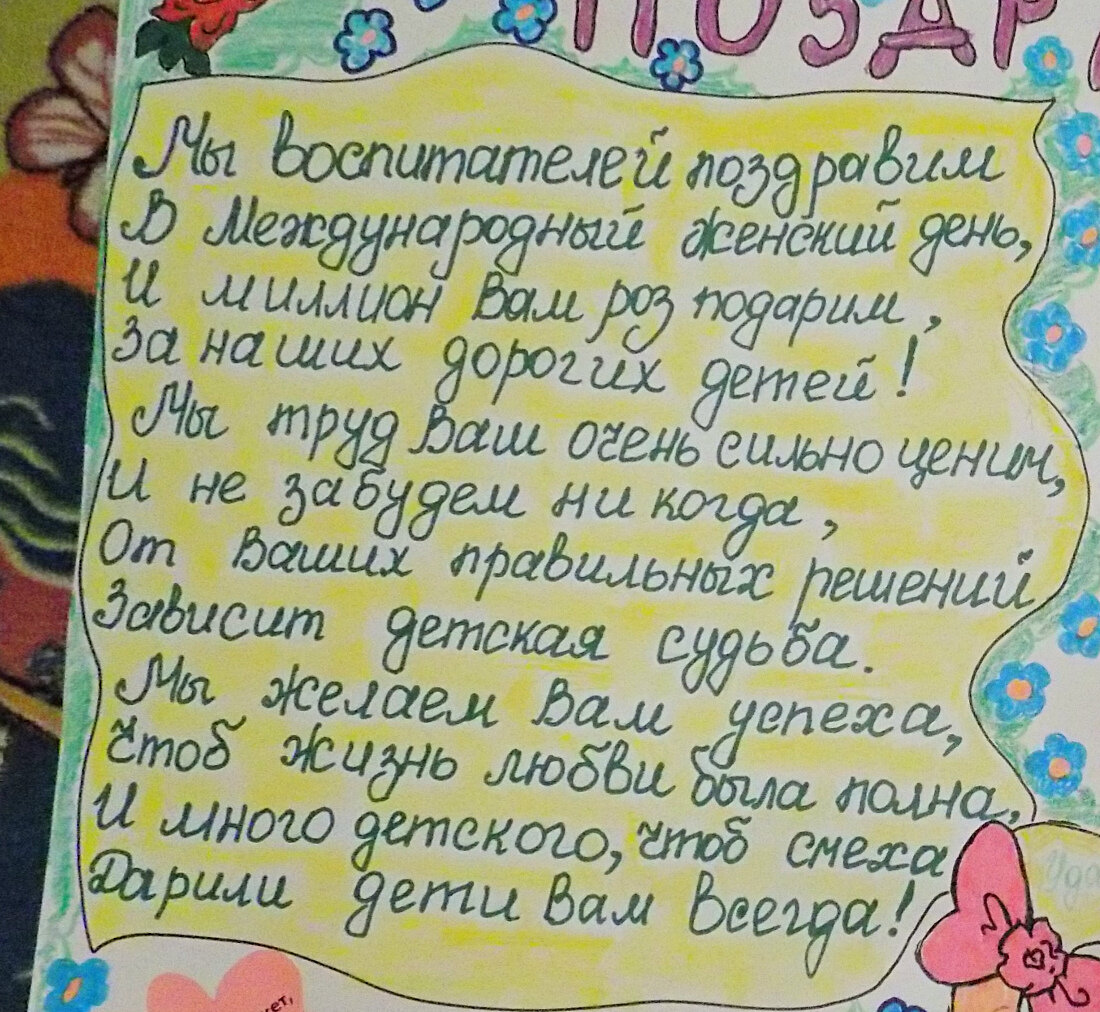 ПОЗДР
Мы воспитателей поздравим
В Международный женский день,
И миллион Вам роз подарим,
За наших дорогих детей!
Мы труд Ваш очень сильно ценим,
И не забудем никогда,
От Ваших правильных решений
Зависит детская судьба.
Мы желаем Вам успеха,
Чтоб жизнь любви была полна,
И много детского, чтоб смеха
Дарили дети Вам всегда!